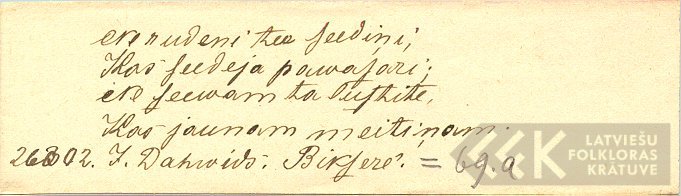 ik rudeni tee seedini,
Kas seedeja pawasari;
ik seewam ta lustite,
Kas jaunam meitiņam.
26302. J. Dahwids. Biksere. = 69.a
LATVIEŠU
FOLKLORAS
KRĀTUVE